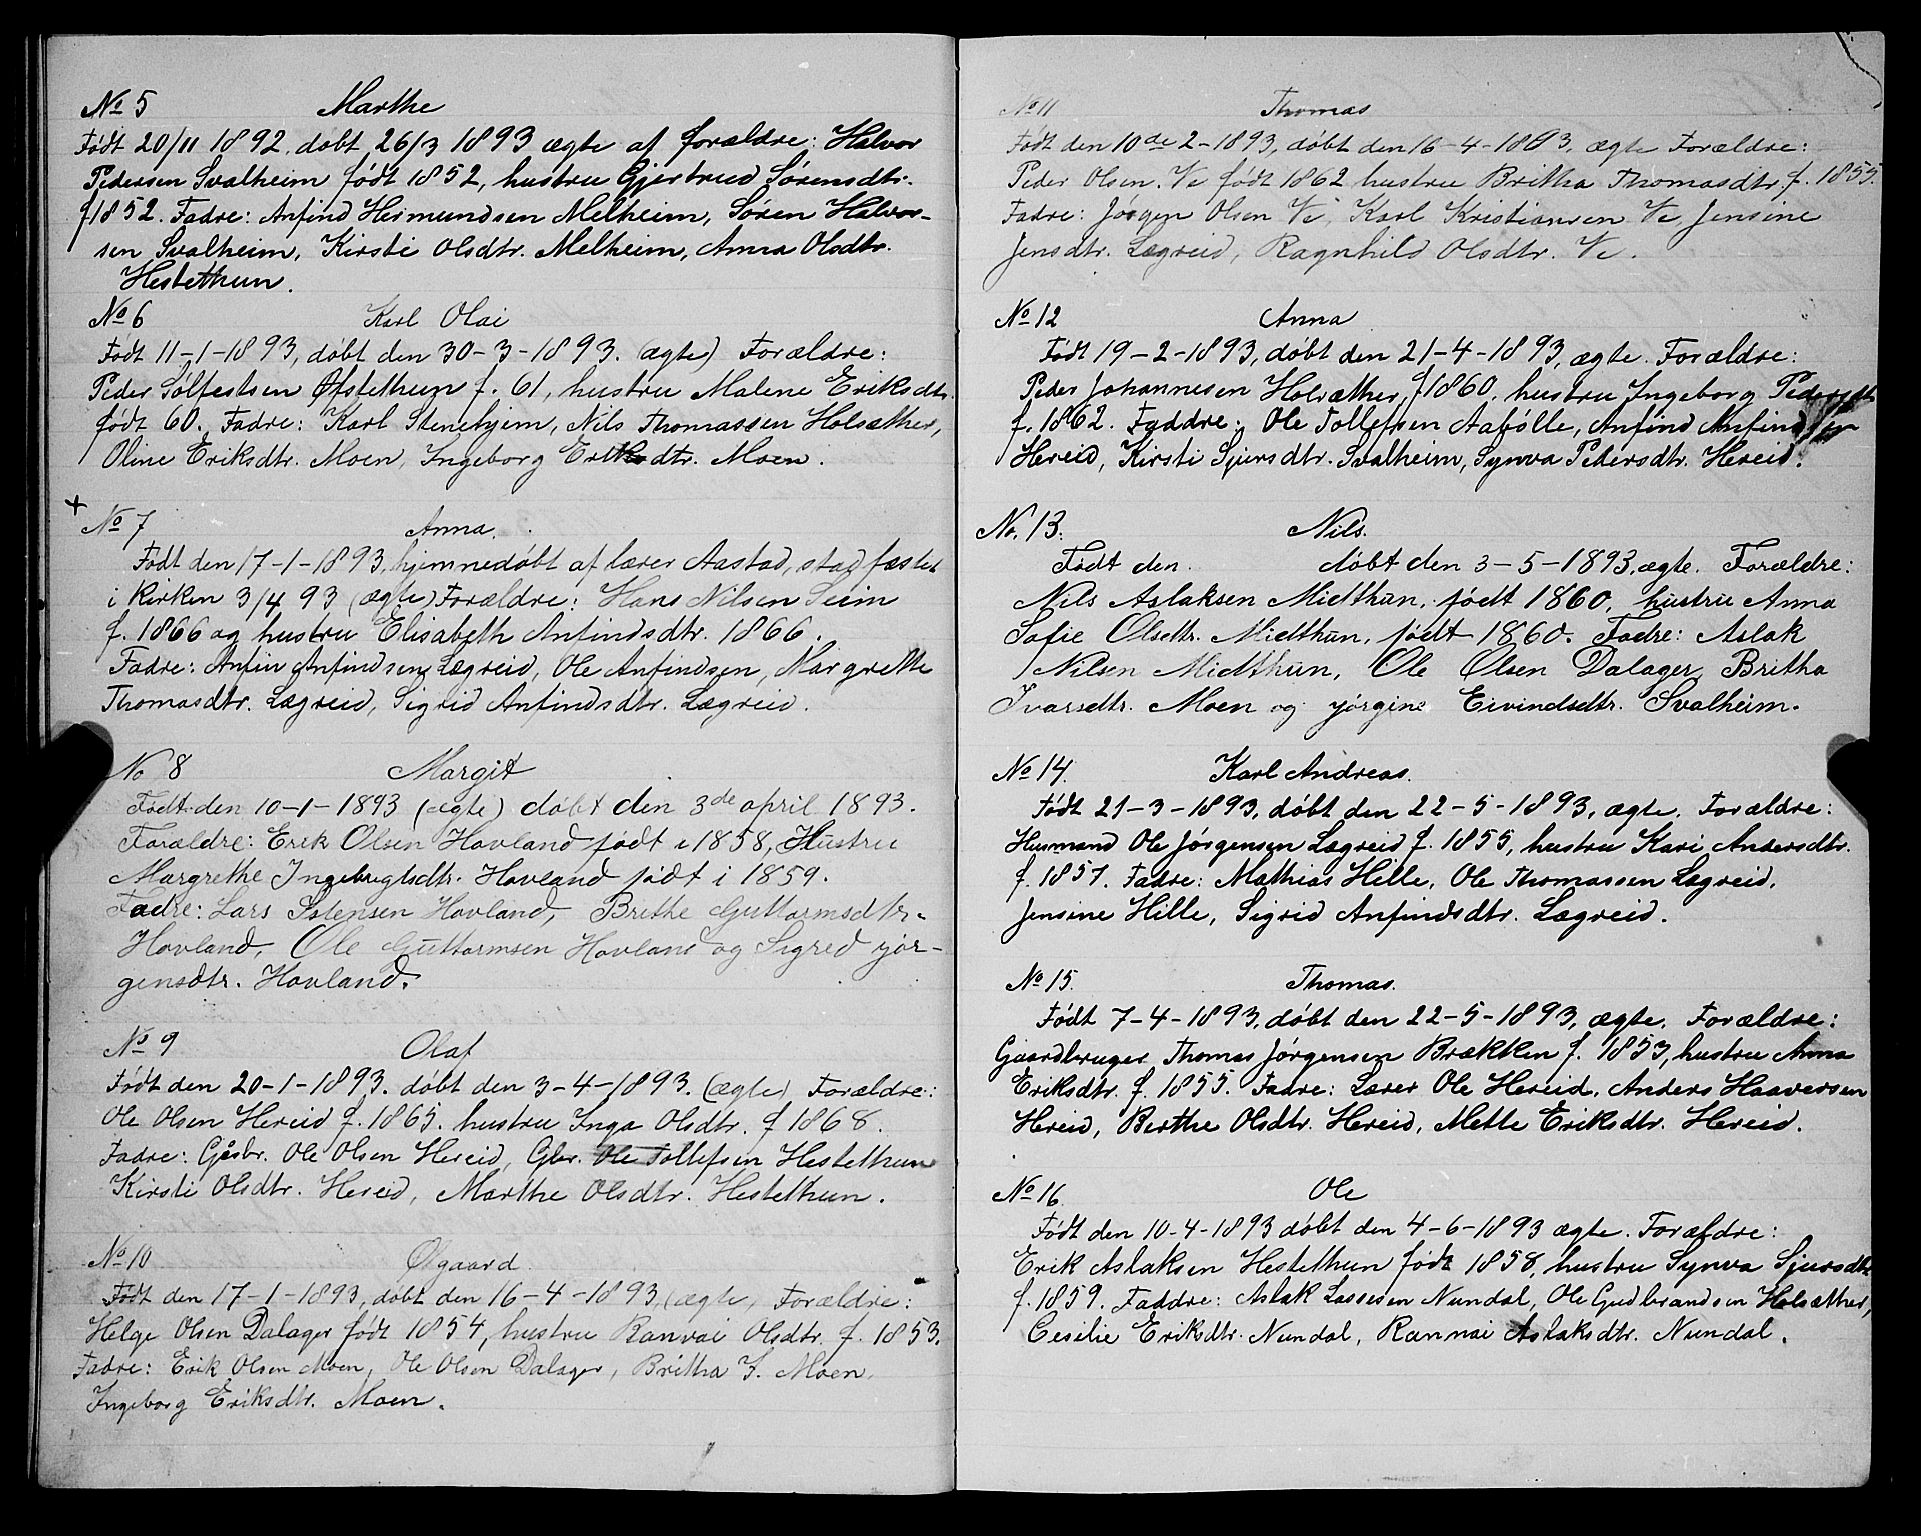 No 5 Marthe
Født 20/11 1892. døbt 26/3 1893 ægte af forældre: Halvor
Pedersen Svalheim født 1852, hustru Gjertrud Sørensdtr.
f 1852. Fadre: Anfind Hermundsen Melheim, Søren Halvor-
sen Svalheim, Kirsti Olsdtr. Melheim, Anna Olsdtr.
Hestethun.
No 6 Karl Olai
Født 11-1-1893, døbt den 30-3-1893. (ægte) Forældre:
Peder Solfestsen Øfstethun f. 61, hustru Malene Eriksdtr.
født 60. Fadre: Karl Stenehjem, Nils Thomassen Holsæther,
Oline Eriksdtr. Moen, Ingeborg Eriksdtr. Moen.
+
No 7 Anna.
Født den 17-1-1893. hjemmedøbt af lærer Aastad, stadfæstet
i Kirken 3/4 93 (ægte) Forældre: Hans Nilsen Seim
f. 1866 og hustru Elisabeth Anfindsdtr. 1866.
Fadre: Anfin Anfindsen Lægreid, Ole Anfindsen, Margrethe
Thomasdtr. Lægreid, Sigrid Anfindsdtr. Lægreid.
No 8 Margit
Født den 10-1-1893 (ægte) døbt den 3de april 1893.
Forældre: Erik Olsen Hovland født i 1858, Hustru
Margrethe Ingebrigtsdtr. Hovland født i 1859.
Fadre: Lars Istensen Hovland, Brithe Guttormsdtr.
Hovland, Ole Guttormsen Hovland og Sigred Jør-
gensdtr. Hovland.
No 9 Olaf
Født den 20-1-1893. døbt den 3-4-1893. (ægte) Forældre:
Ole Olsen Hereid f. 1865. hustru Inga Olsdtr. f 1868.
Fadre: Gåsbr. Ole Olsen Hereid, Gbr. Ole Tollefsen Hestethun
Kirsti Olsdtr. Hereid, Marthe Olsdtr. Hestethun.
No 10 Olgaard.
Født den 17-1-1893, døbt den 16-4-1893, (ægte, Forældre:
Helge Olsen Dalager født 1854, hustru Ranvai Olsdtr. f. 1853.
Fadre: Erik Olsen Moen, Ole Olsen Dalager, Britha I. Moen,
Ingeborg Eriksdtr. Moen.
No 11 Thomas
Født den 10de 2-1893, døbt den 16-4-1893, ægte Forældre:
Peder Olsen. Ve født 1862 hustru Britha Thomasdtr. f. 1855.
Fadre: Jørgen Olsen Ve, Karl Kristiansen Ve, Jensine
Jensdtr. Lægreid, Ragnhild Olsdtr. Ve.
No 12 Anna
Født 19-2-1893, døbt den 21-4-1893, ægte. Forældre:
Peder Johannesen Holsæther, f 1860, hustru Ingeborg Pedersdtr
f. 1862. Faddre: Ole Tollefsen Aafølle, Anfind Anfindsen
Hereid, Kirsti Sjursdtr. Svalheim, Synva Pedersdtr. Hereid.
No. 13. Nils.
Født den. døbt den 3-5-1893. ægte. Forældre:
Nils Aslaksen Midthun, født 1860, hustru Anna
Sofie Olsdtr. Midthun, født 1860. Fadre: Aslak
Nilsen Midthun, Ole Olsen Dalager, Britha
Ivarsdtr. Moen og Jørgine Eivindsdtr. Svalheim.
No 14. Karl Andreas.
Født 21-3-1893, døbt den 22-5-1893, ægte. Forældre:
Husmand Ole Jørgensen Lægreid f. 1855, hustru Kari Andersdtr.
f. 1857. Fadre: Mathias Hille, Ole Thomassen Lægreid,
Jensine Hille, Sigrid Anfindsdtr. Lægreid.
No 15. Thomas.
Født 7-4-1893, døbt den 22-5-1893, ægte. Forældre:
Gaardbruger Thomas Jørgensen Brækken f. 1853, hustru Anna
Eriksdtr. f. 1855. Fadre: Lærer Ole Hereid, Anders Haaversen
Hereid, Berthe Olsdtr. Hereid, Mette Eriksdtr. Hereid.
No 16. Ole
Født den 10-4-1893 døbt den 4-6-1893 ægte. Forældre:
Erik Aslaksen Hestethun født 1858, hustru Synva Sjursdtr
f. 1859. Faddre: Aslak Lassesen Nundal, Ole Gudbrandsen Holsæther,
Cesilie Eriksdtr. Nundal, Rannai Aslaksdtr. Nundal.